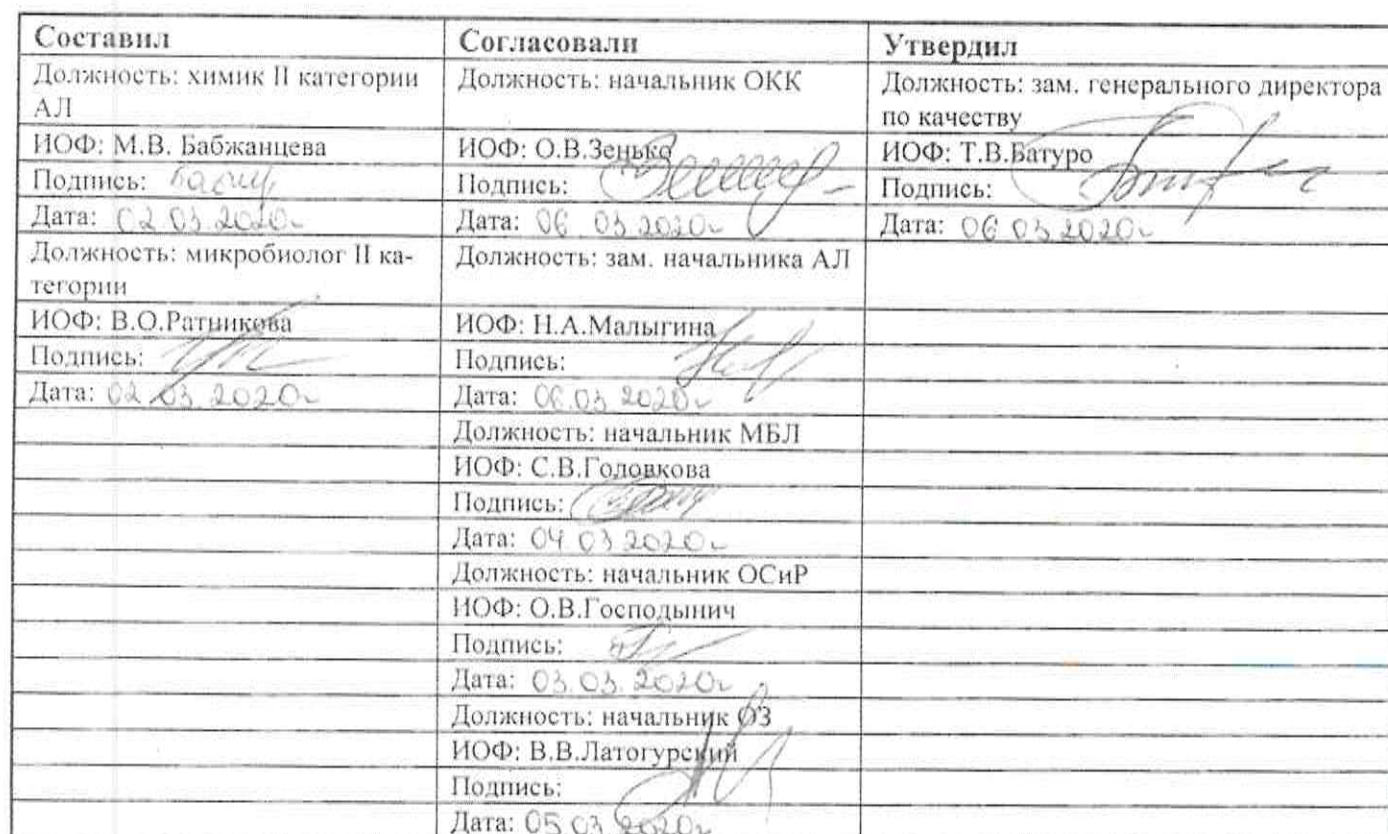 Составил Согласовали Утвердил
Должность: химик II категории Должность: начальник ОКК Должность: зам. генерального директора
АЛ по качеству
ИОФ: М.В. Бабжанцева ИОФ: О.В.Зенько ИОФ: Т.В.Батуро
Подпись: Подпись: Подпись:
Дата: 02.03.2020г Дата: 06.03.2020г Дата: 06.03.2020г
Должность: микробиолог II ка- Должность: зам. начальника АЛ
тегории
ИОФ: В.О.Ратникова ИОФ: Н.А.Малыгина
Подпись: Подпись:
Дата: 02.03.2020г Дата: 06.03.2020г
Должность: начальник МБЛ
ИОФ: С.В.Головкова
Подпись:
Дата: 04.03.2020г
Должность: начальник ОСиР
ИОФ: О.В.Господынич
Подпись:
Дата: 03.03.2020г
Должность: начальник ОЗ
ИОФ: В.В.Латогурский
Подпись:
Дата: 05.03.2020г